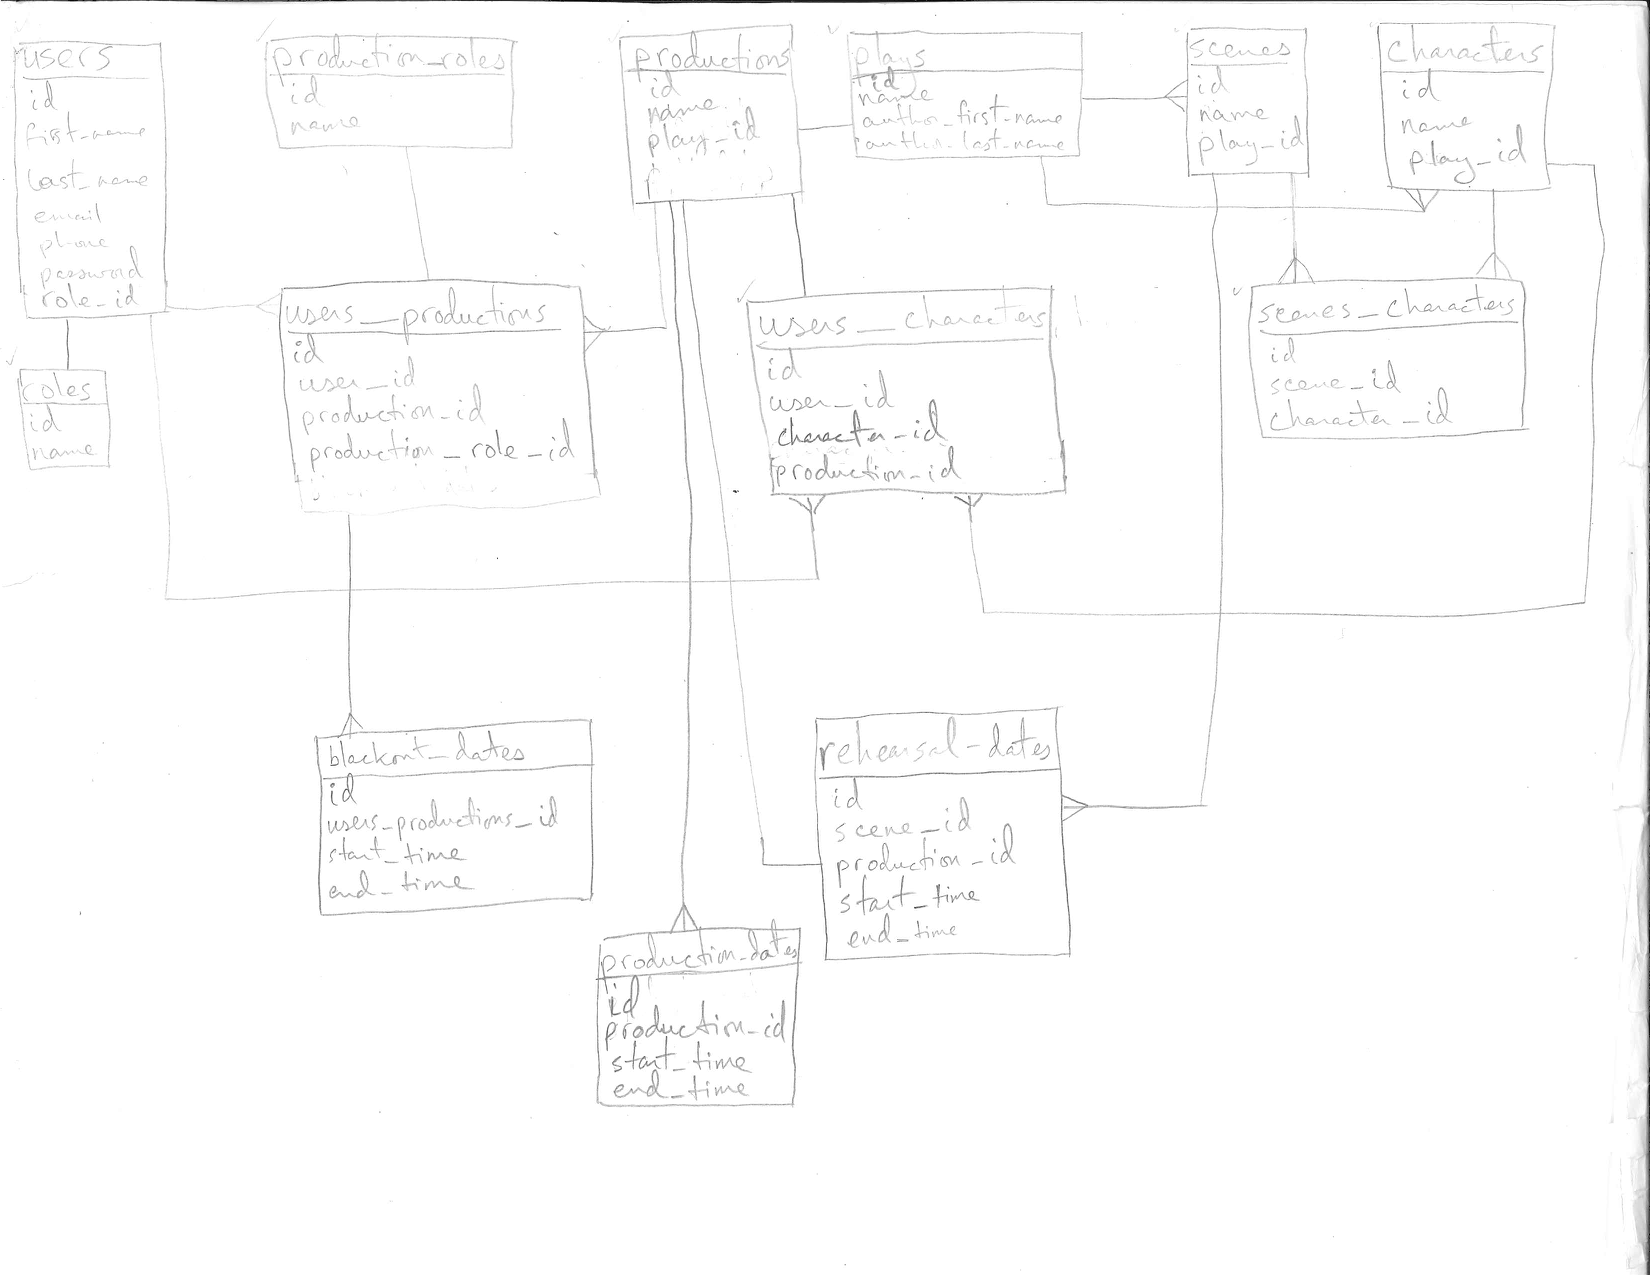 users
id
first_name
last_name
email
phone
password
role_id
roles
id
name
production_roles
id
name
productions
id
name
play_id
plays
id
name
author_first_name
author_last_name
scenes
id
name
play_id
characters
id
name
play_id
users_productions
id
user_id
production_id
production_role_id
users_characters
id
user_id
character_id
production_id
scenes_characters
id
scene_id
character_id
blackout_dates
id
users_productions_id
start_time
end_time
rehearsal-dates
id
scene_id
production_id
start_time
end_time
production_dates
id
production_id
start_time
end_time